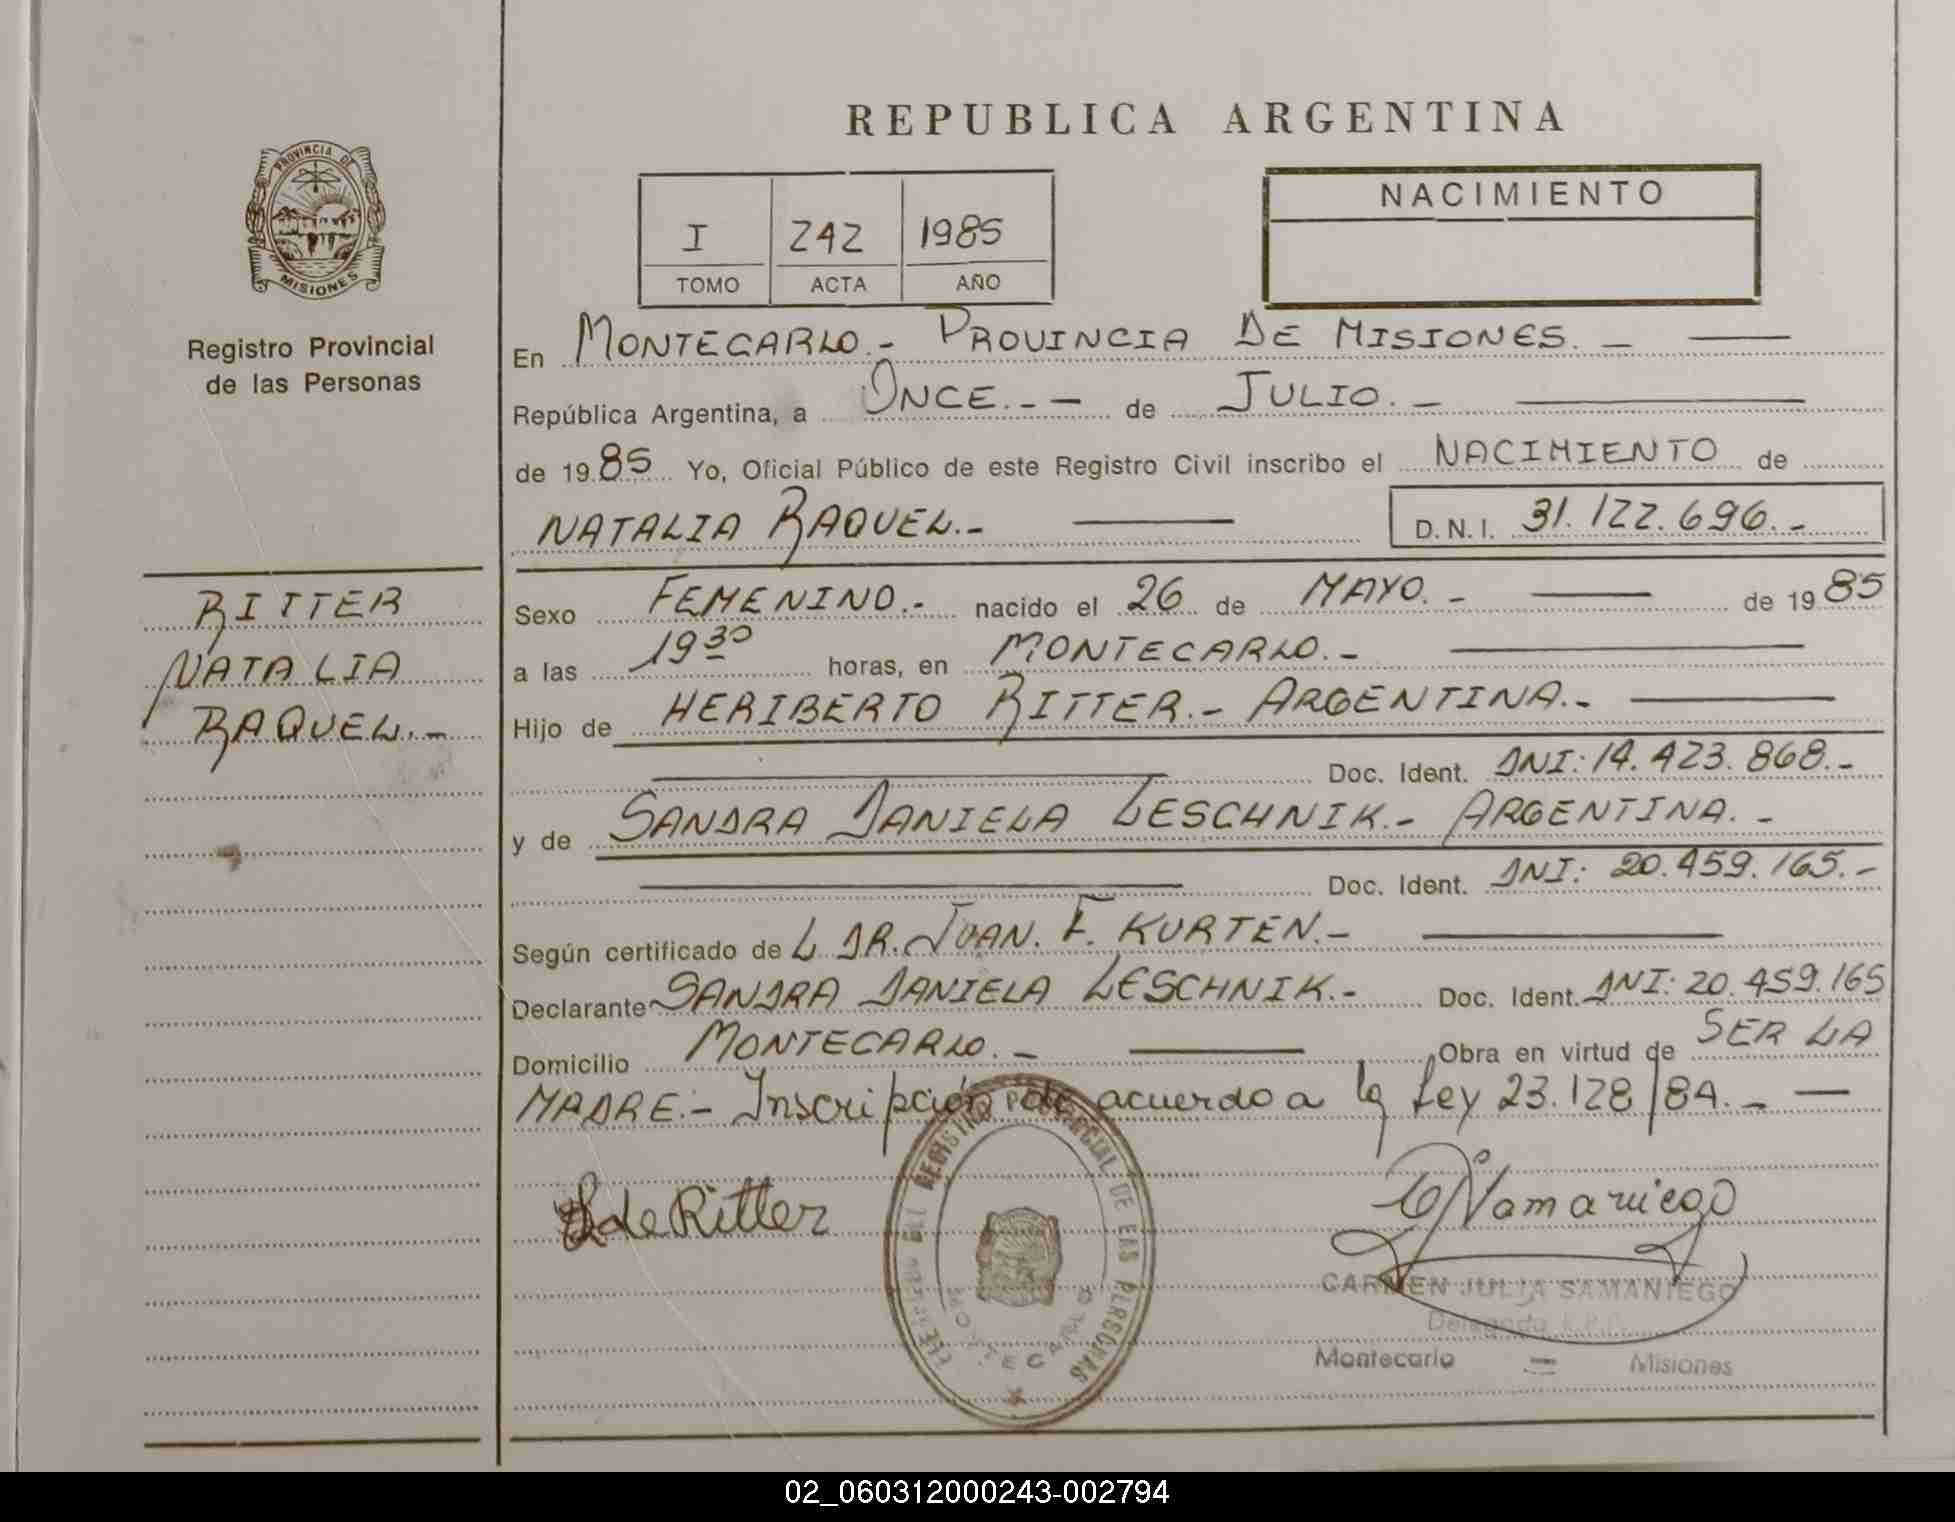 REPUBLICA ARGENTINA
PROVINCIA DE
MISIONES
Registro Provincial
de las Personas
I 242 1985
TOMO ACTA AÑO
NACIMIENTO
En MONTECARLO.- PROVINCIA DE MISIONES. -
República Argentina, a ONCE.-- de JULIO. -
de 1985 Yo, Oficial Público de este Registro Civil inscribo el NACIMIENTO de
NATALIA RAQUEL.- D.N.I. 31.122.696.-
RITTER
NATALIA
RAQUEL.-
Sexo FEMENINO.- nacido el 26 de MAYO. - de 1985
a las 19 30 horas, en MONTECARLO.-
Hijo de HERIBERTO RITTER.- ARGENTINA.-
Doc. Ident. DNI: 14.423.868.-
y de SANDRA DANIELA LESCHNIK.- ARGENTINA. -
Doc. Ident. DNI: 20.459.165.-
Según certificado de L DR. JUAN. F. KURTEN.-
Declarante SANDRA DANIELA LESCHNIK.- Doc. Ident. DNI: 20.459.165
Domicilio MONTECARLO. - Obra en virtud de SER LA
MADRE.- Inscripción de acuerdo a la ley 23.128/84. -
REGISTRO PROVINCIAL DE LAS PERSONAS
MONTECARLO
S de Ritter
CJSamaniego
CARMEN JULIA SAMANIEGO
Delegada R.P.P.
Montecarlo = Misiones
02_060312000243-002794